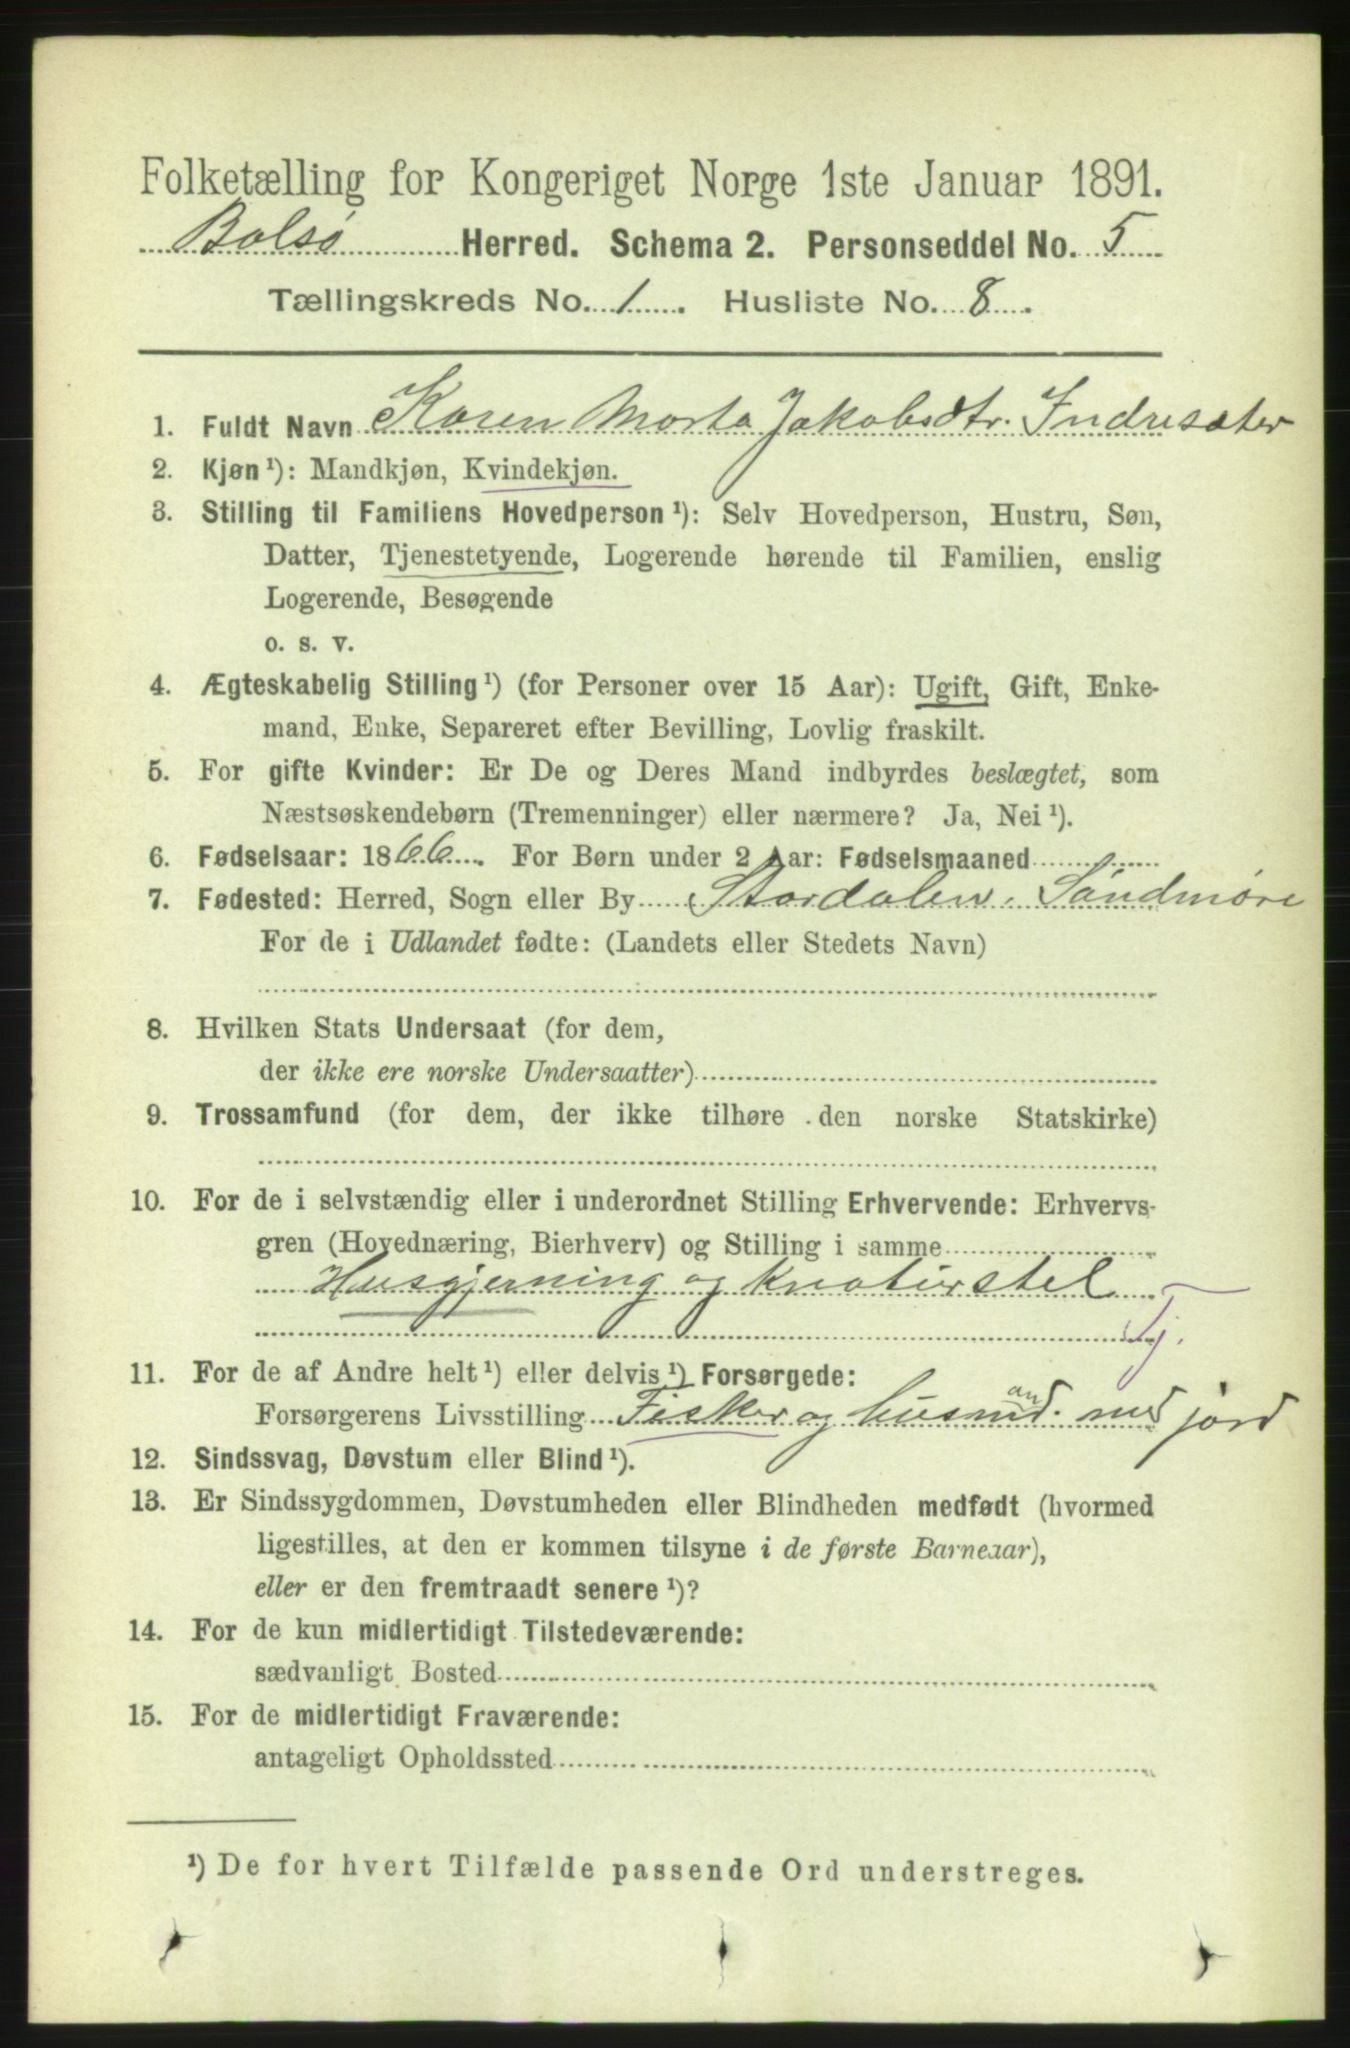 Folketælling for Kongeriget Norge 1ste Januar 1891.
Bolsø Herred. Schema 2. Personseddel No. 5
Tællingskreds No. 1. Husliste No. 8.
1. Fuldt Navn Karen Marta Jakobsdtr. Indresæter
2. Kjøn ¹): Mandkjøn, Kvindekjøn.
3. Stilling til Familiens Hovedperson ¹): Selv Hovedperson, Hustru, Søn,
Datter, Tjenestetyende, Logerende hørende til Familien, enslig
Logerende, Besøgende
o. s. v.
4. Ægteskabelig Stilling ¹) (for Personer over 15 Aar): Ugift, Gift, Enke-
mand, Enke, Separeret efter Bevilling, Lovlig fraskilt.
5. For gifte Kvinder: Er De og Deres Mand indbyrdes beslægtet, som
Næstsøskendebørn (Tremenninger) eller nærmere? Ja, Nei ¹).
6. Fødselsaar: 1866. For Børn under 2 Aar: Fødselsmaaned
7. Fødested: Herred, Sogn eller By Stordalen. Søndmøre
For de i Udlandet fødte: (Landets eller Stedets Navn)
8. Hvilken Stats Undersaat (for dem,
der ikke ere norske Undersaatter)
9. Trossamfund (for dem, der ikke tilhøre den norske Statskirke)
10. For de i selvstændig eller i underordnet Stilling Erhvervende: Erhvervs-
gren (Hovednæring, Bierhverv) og Stilling i samme
Husgjerning og Kreaturstel
Tj.
11. For de af Andre helt ¹) eller delvis ¹) Forsørgede:
Forsørgerens Livsstilling Fisker og husmand. med jord
12. Sindssvag, Døvstum eller Blind ¹).
13. Er Sindssygdommen, Døvstumheden eller Blindheden medfødt (hvormed
ligestilles, at den er kommen tilsyne i de første Barneaar),
eller er den fremtraadt senere ¹)?
14. For de kun midlertidigt Tilstedeværende:
sædvanligt Bosted
15. For de midlertidigt Fraværende:
antageligt Opholdssted
¹) De for hvert Tilfælde passende Ord understreges.